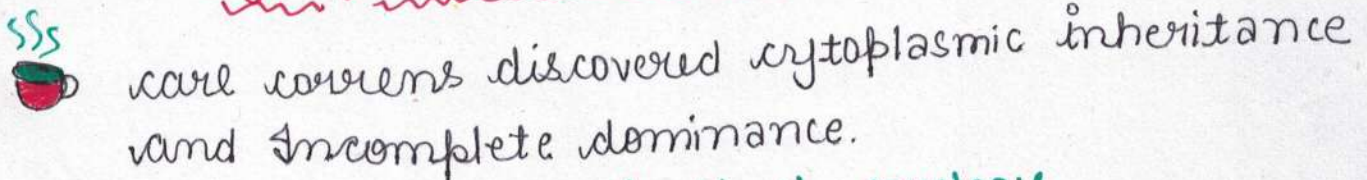 carl correns discovered cytoplasmic inheritance
and Incomplete dominance.